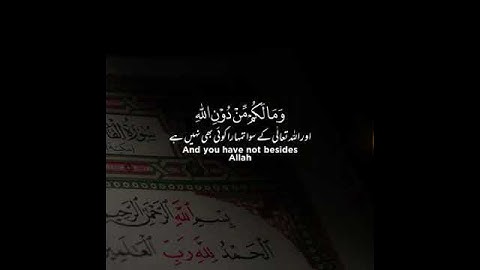 وَمَا لَكُمْ مِّنْ دُوْنِ اللّٰهِ
اور اللہ تعالٰی کے سوا تمہارا کوئی بھی نہیں ہے
And you have not besides
Allah
سُورَةُ
بِسْمِ اللَّهِ الرَّحْمَٰنِ الرَّحِيمِ
الْحَمْدُ لِلَّهِ رَبِّ الْعَالَمِينَ